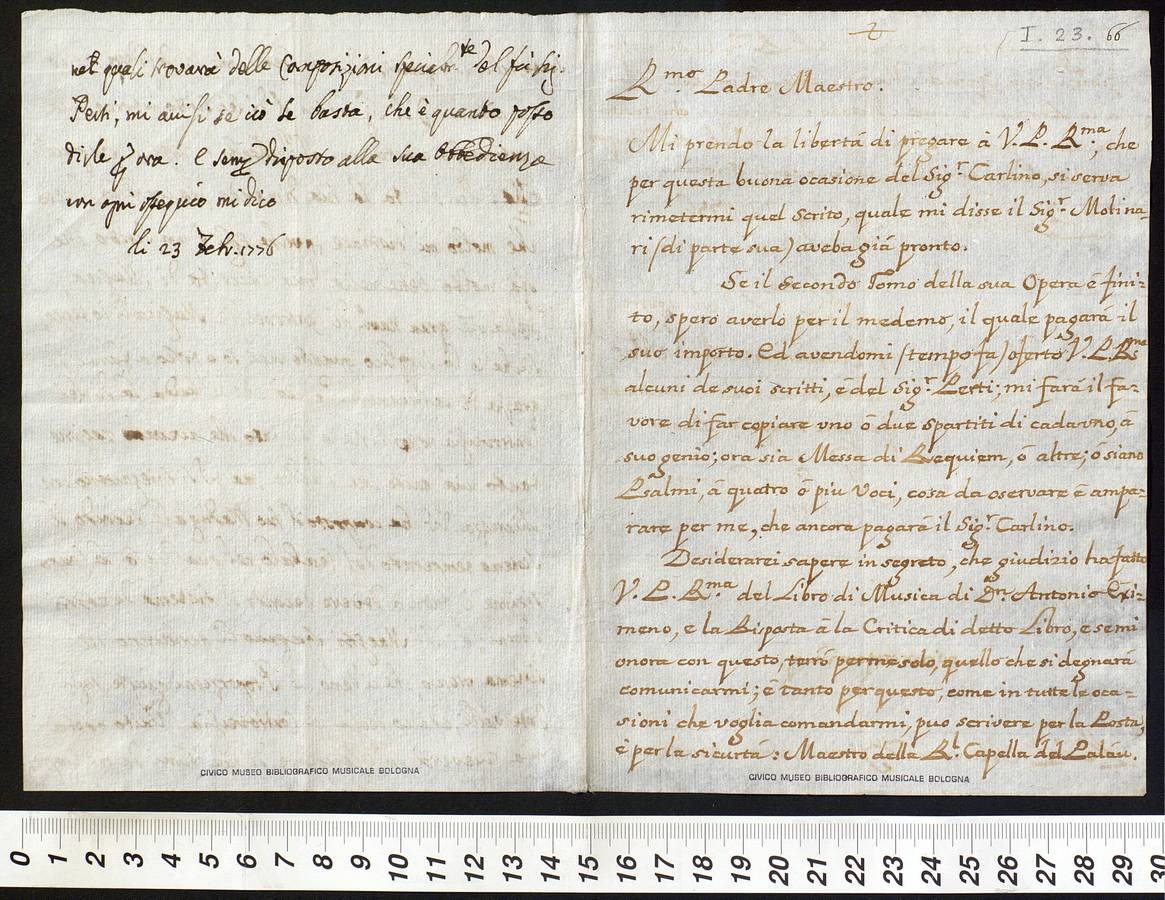 nelli quali trovarà delle Composizioni specialm.te del fù Sig.
Perti, mi avisi se ciò le basta, che è quanto posso
dirle ora. e sempre disposto alla sua obbedienza
con ogni ossequio mi dico
li 23 Febr. 1776
I. 23. 66
R.mo Padre Maestro.
Mi prendo la libertá di pregare à V. P. R.ma, che
per questa buona ocasione del Sig.r Carlino, si serva
rimetermi quel scrito, quale mi disse il Sig.r Molina-
ri (di parte sua) aveba giá pronto.
Se il Secondo Tomo della sua Opera é fini-
to, spero averlo per il medemo, il quale pagará il
suo importo. Ed avendomi (tempo fa) oferto V. P. R.ma
alcuni de suoi scritti, é del Sig.r Perti; mi fará il fa-
vore di far copiare uno ó due spartiti di cadauno, á
suo genio; ora sia Messa di Requiem, ó altre; ó siano
Psalmi, á quatro ó piu Voci, cosa da oservare é ampa-
rare per me, che ancora pagará il Sig.r Carlino.
Desiderarei sapere in segreto, che giudizio ha fatto
V. P. R.ma del Libro di Musica di Dn. Antonio Exi-
meno, e la Risposta á la Critica di detto Libro, e se mi
onora con questo, terró per me solo, quello che si degnará
comunicarmi; é tanto per questo, come in tutte le oca-
sioni che voglia comandarmi, puo scrivere per la Posta,
é per la sicurtá: Maestro della R.l Capella del Paláu.
CIVICO MUSEO BIBLIOGRAFICO MUSICALE BOLOGNA
CIVICO MUSEO BIBLIOGRAFICO MUSICALE BOLOGNA
0 1 2 3 4 5 6 7 8 9 10 11 12 13 14 15 16 17 18 19 20 21 22 23 24 25 26 27 28 29 30